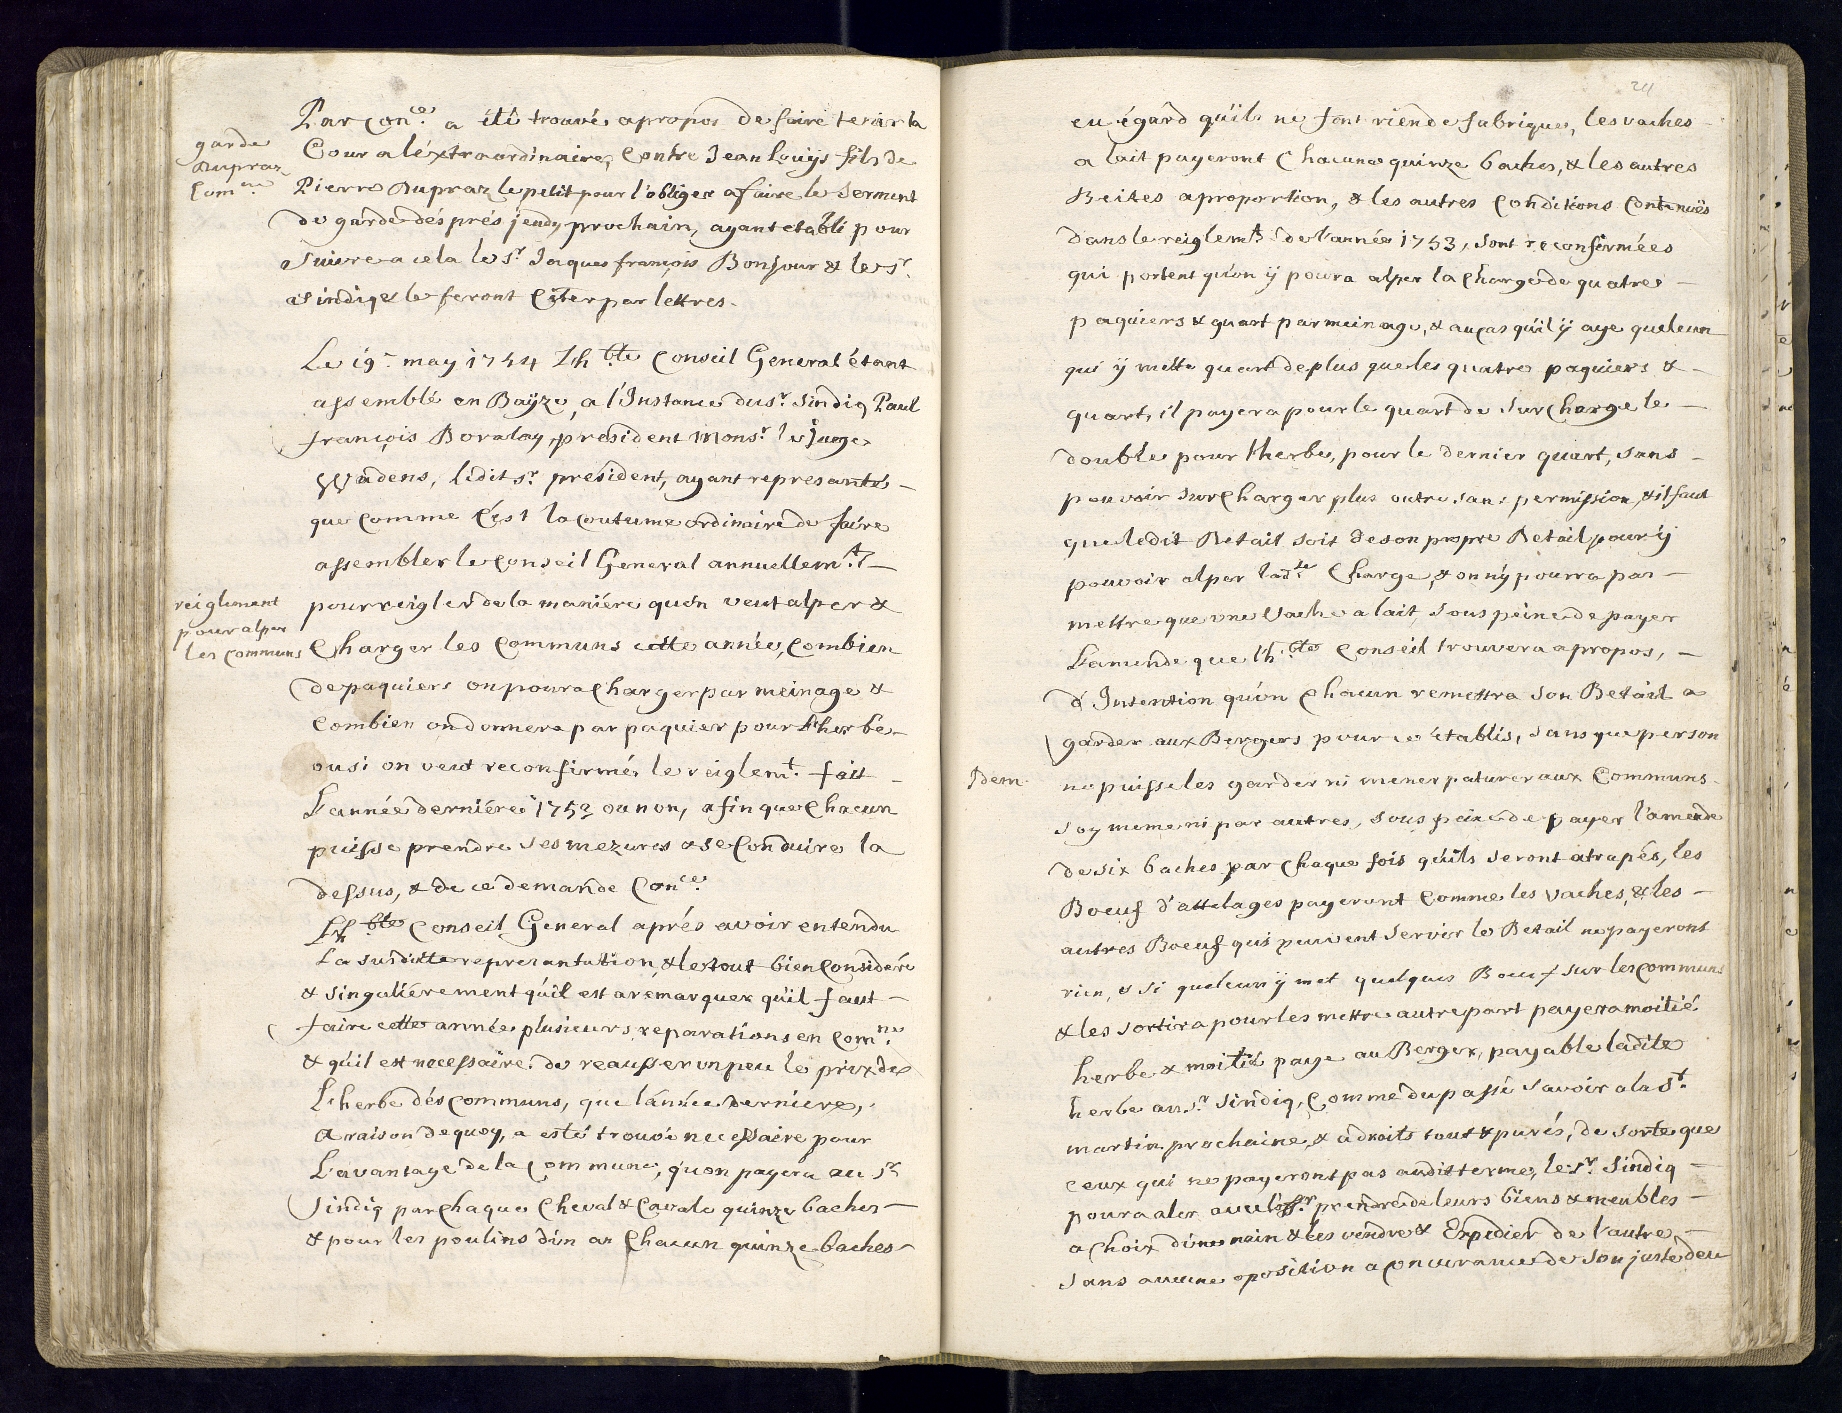 garde
Dupraz
Com.ne
Par Con.ce a été trouvé apropos de faire tenir la
Cour a léxtraordinaire, Contre Jean Louijs fils de
Pierre Dupraz le petit pour l'obliger a faire le Serment
de garde dés prés jeudy prochain, ayant etabli pour
Suivre a cela le S.r Jaques françois Bonjour & le S.r
Sindiq le feront Citer par lettres.
Le 19.e may 1754 Lh.ble Conseil General étant
assemblé en Baÿze, a l'Instance du S.r Sindiq Paul
françois Boralay, président Mons.r le Juge
Wadens, ledit S.r président, ayant represanté
que Comme C'est la Coutume ordinaire de faire
assembler le Conseil General annuellem.t
reiglement
pour alper
les Communs
pour reigler de la maniére qu'on veut alper &
Charger les Communs cette année, Combien
de paquiers on poura Charger par meinage &
Combien on donnera par paquier pour Lherbe
ou si on veut reconfirmér le reiglem.t fait
L'année derniére 1753 ou non, afin que Chacun
puisse prendre ses mezures & se Conduire la
dessus, & de ce demande Con.ce
Lh.ble Conseil General aprés avoir entendu
La susditte represantation, & le tout bien Considéré
& singuliérement qu'il est a remarquer qu'il faut
faire cette année plusieurs reparations en Com.ne
& qu'il est necessaire de reausser un peu le prix de
L'herbe dés Communs, que l'année derniere,
A raison de quoy, a esté trouvé necessaire pour
L'avantage de la Commune, qu'on payera au S.r
Sindiq par Chaque Cheval & Cavale quinze baches
& pour les poulins d'un an Chacun quinze baches
24
eu égard qu'ils ne font rien de fabrique, les vaches
a lait payeront Chacune quinze baches, & les autres
Beites a proportion, & les autres Conditions Contenuës
dans le reiglem.t de l'année 1753, sont reconfirmées
qui portent qu'on ÿ poura alper la Charge de quatre
paquiers & quart par meinage, & au cas qu'il ÿ aye quelcun
qui ÿ mette quart de plus que les quatre paquiers &
quart, il payera pour le quart de sur Charge le
double pour l'herbe, pour le dernier quart, sans
pouvoir sur Charger plus outre sans permission, & il faut
que ledit Betail soit de son propre Betail pour ÿ
pouvoir alper lad.te Charge, & on n'ÿ pourra pas
mettre que une vache a lait, sous peine de payer
Lamende que Lh.ble Conseil trouvera apropos,
d'Intention qu'on Chacun remettra son Betail a
garder aux Bergers pour ce établis, sans que person
Idem
ne puisse les garder ni mener paturer aux Communs
soy meme ni par autres, sous peine de payer l'amende
de six baches par Chaque fois qu'ils seront atrapés, les
Boeuf d'attelages payeront Comme les vaches, & les
autres Boeuf qui peuvent servir le Betail ne payeront
rien, & si quelcun ÿ met quelques Boeuf sur les Communs
& les sortira pour les mettre autre part payera moitié
herbe & moitié paye au Berger, payable ladite
herbe au S.r Sindiq, Comme du passé savoir a la S.t
martin prochaine, & a droits tous & purés, de sorte que
ceux qui ne payeront pas audit terme, le S.r Sindiq
poura aler avec l'off.r prendre de leurs biens & meubles
a Choix d'une main & les vendre & Expedier de l'autre
sans aucune oposition a Concurrance de son juste deu